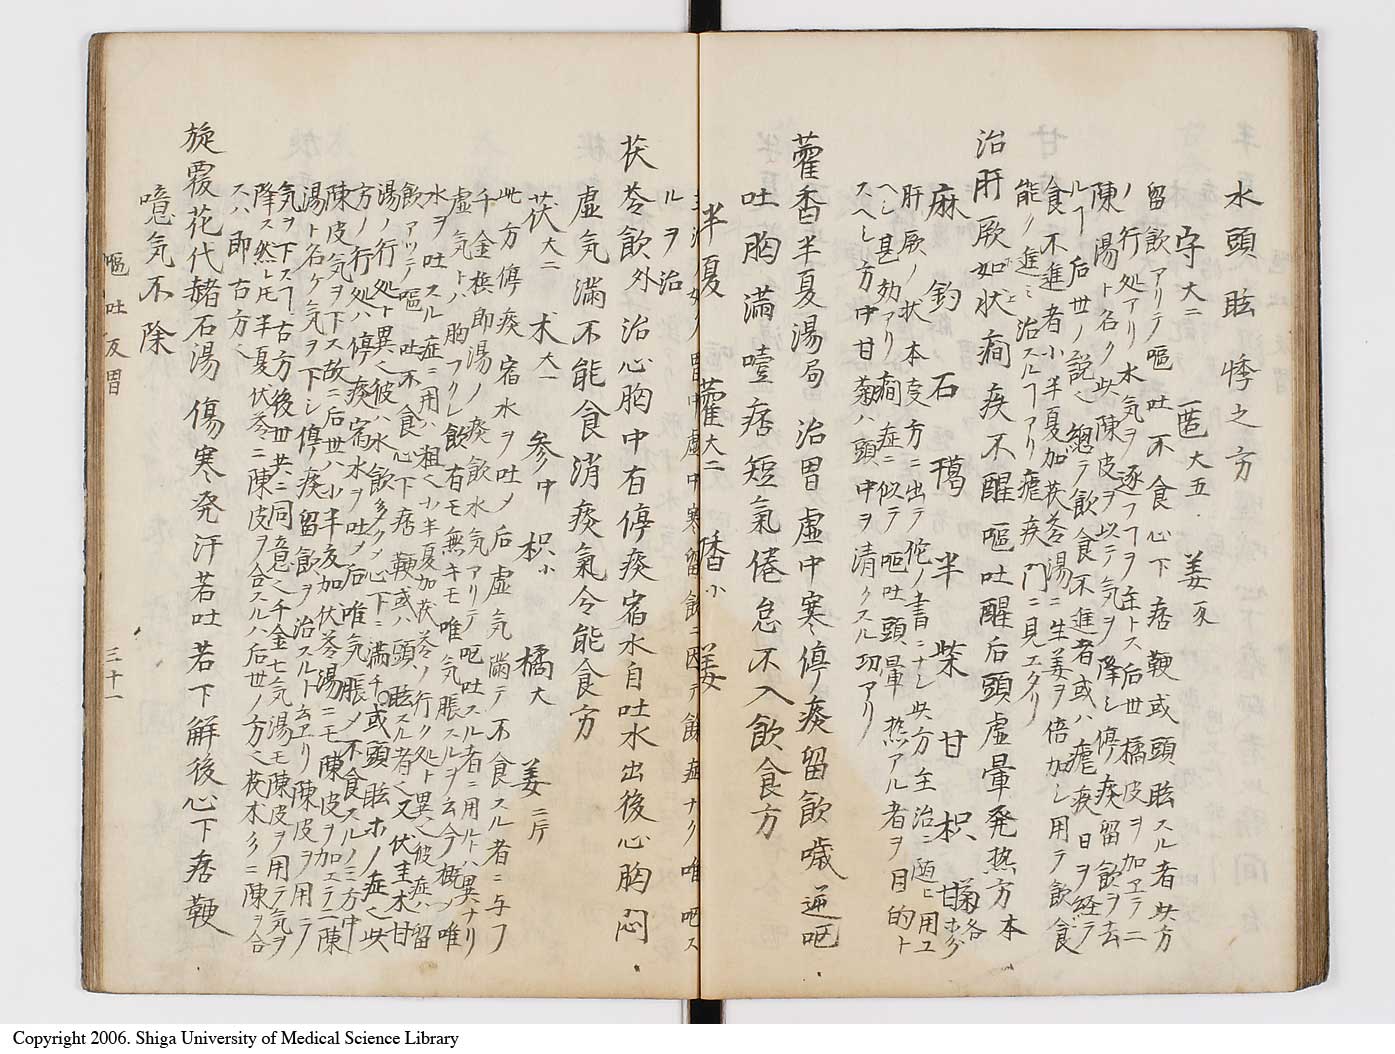 水頭眩悸之方
守大二 匿大五 姜亥
留飲アリテ嘔吐不食心下痞鞕或頭眩スル者此方
ノ行処アリ水気ヲ逐フヿヲ主トス后世橘皮ヲ加エテ二
陳湯ト名ク此陳皮ヲ以テ気ヲ降シ停痰留飲ヲ去
ルヿ后世ノ説ヘ総テ飲食不進者或ハ瘧疾日ヲ経テ
食不進者小半夏加茯苓湯ニ生姜ヲ倍加シ用テ飲食
能ク進ミ治スルヿアリ瘧疾門ニ見エタリ
治肝厥如状癇疾不醒嘔吐醒后頭虚暈発热方本
麻 釣 石 䓀 半 柴 甘 枳 菊各
肝厥ノ状本庋方ニ出テ佗ノ書ニナシ此方主治ニ随ヒ用ユ
ヘシ甚効アリ癇症ニ似テ嘔吐頭暈热アル者ヲ目的ト
スヘシ方中甘菊ハ頭中ヲ清クスル功アリ
藿香半夏湯局治胃虚中寒停痰留飲噦逆呕
吐胸満噎痞短氣倦怠不入飲食方
半夏 藿大二 香小 姜
胃中虚中寒留飲ニ因テ餘症ナク唯呕ス
ルヲ治
茯苓飲外治心胸中有停痰宿水自吐水出後心胸悶
虚気満不能食消痰氣令能食方
茯大二 术大一 参中 枳小 橘大 姜二片
此方停痰宿水ヲ吐メ后虚気満テ不食スル者ニ与フ
千金梹郎湯ノ痰飲水気アリテ呕吐スル者ニ用ルトハ異ナリ
虚気トハ胸フクレ飲有モ無キモ唯気脹スルヲ云今概メ唯
水ヲ吐スル症ニ用ハ粗ヘ小半夏加茯苓ノ行ク処ト異ヘ彼症ハ留
飲アリテ嘔吐不食心下痞鞕或ハ頭眩スル者ヘ又伏圭术甘
湯ノ行処ト異ヘ彼ハ水飲多クメ心下ニ満チ或頭眩ホノ症ヘ此
方ノ行処ハ停痰宿水ヲ吐メ后唯気脹メ不食スルノミ方中
陳皮気ヲ下ス故ニ后世ハ小半夏加伏苓湯ニモ陳皮ヲ加エテ二陳
湯ト名ケ気ヲ下シ停痰留飲ヲ治スルト云ヱリ陳皮ヲ用ニテ
気ヲ下スヿ古方後世共ニ同意ヘ千金七気湯モ陳皮ヲ用テ気ヲ
降ス然レ𪜈半夏伏苓ニ陳皮ヲ合スルハ后世ノ方ヘ茯术多ニ陳ヲ合
スハ即古方ヘ
旋覆花代赭石湯傷寒発汗若吐若下解後心下痞鞕
噫気不除
嘔吐反胃
三十一
Copyright 2006. Shiga University of Medical Science Library